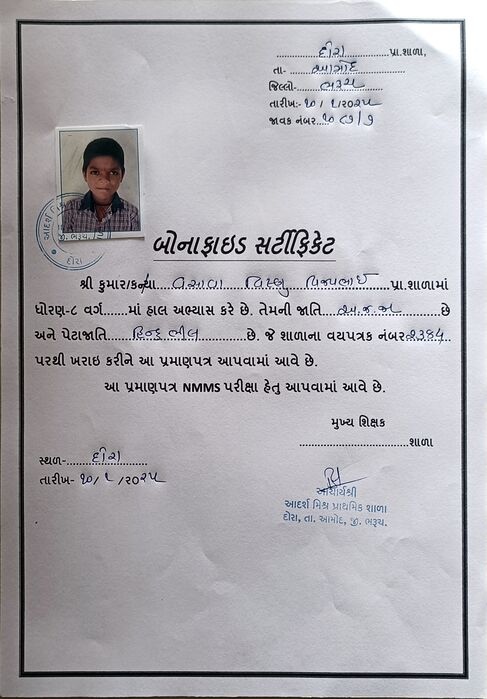 દોરા પ્રા.શાળા,
તા- આમોદ
જિલ્લો- ભરૂચ
તારીખ:- ૧૦/૬/૨૦૨૫
જાવક નંબર
આદર્શ મિશ્ર
જી. ભરૂચ.
દોરા
બોનાફાઇડ સર્ટીફિકેટ
શ્રી કુમાર/કન્યા વસાવા વિષ્ણુ વિજયભાઈ પ્રા.શાળામાં
ધોરણ-૮ વર્ગ.......માં હાલ અભ્યાસ કરે છે. તેમની જાતિ અ.જ.જા છે
અને પેટાજાતિ હિન્દુ ભીલ છે. જે શાળાના વયપત્રક નંબર ૨૩૬૫
પરથી ખરાઇ કરીને આ પ્રમાણપત્ર આપવામાં આવે છે.
આ પ્રમાણપત્ર NMMS પરીક્ષા હેતુ આપવામાં આવે છે.
મુખ્ય શિક્ષક
શાળા
સ્થળ- દોરા
તારીખ- ૧૦/૬/૨૦૨૫
આચાર્યશ્રી
આદર્શ મિશ્ર પ્રાથમિક શાળા
દોરા, તા. આમોદ, જી. ભરૂચ.